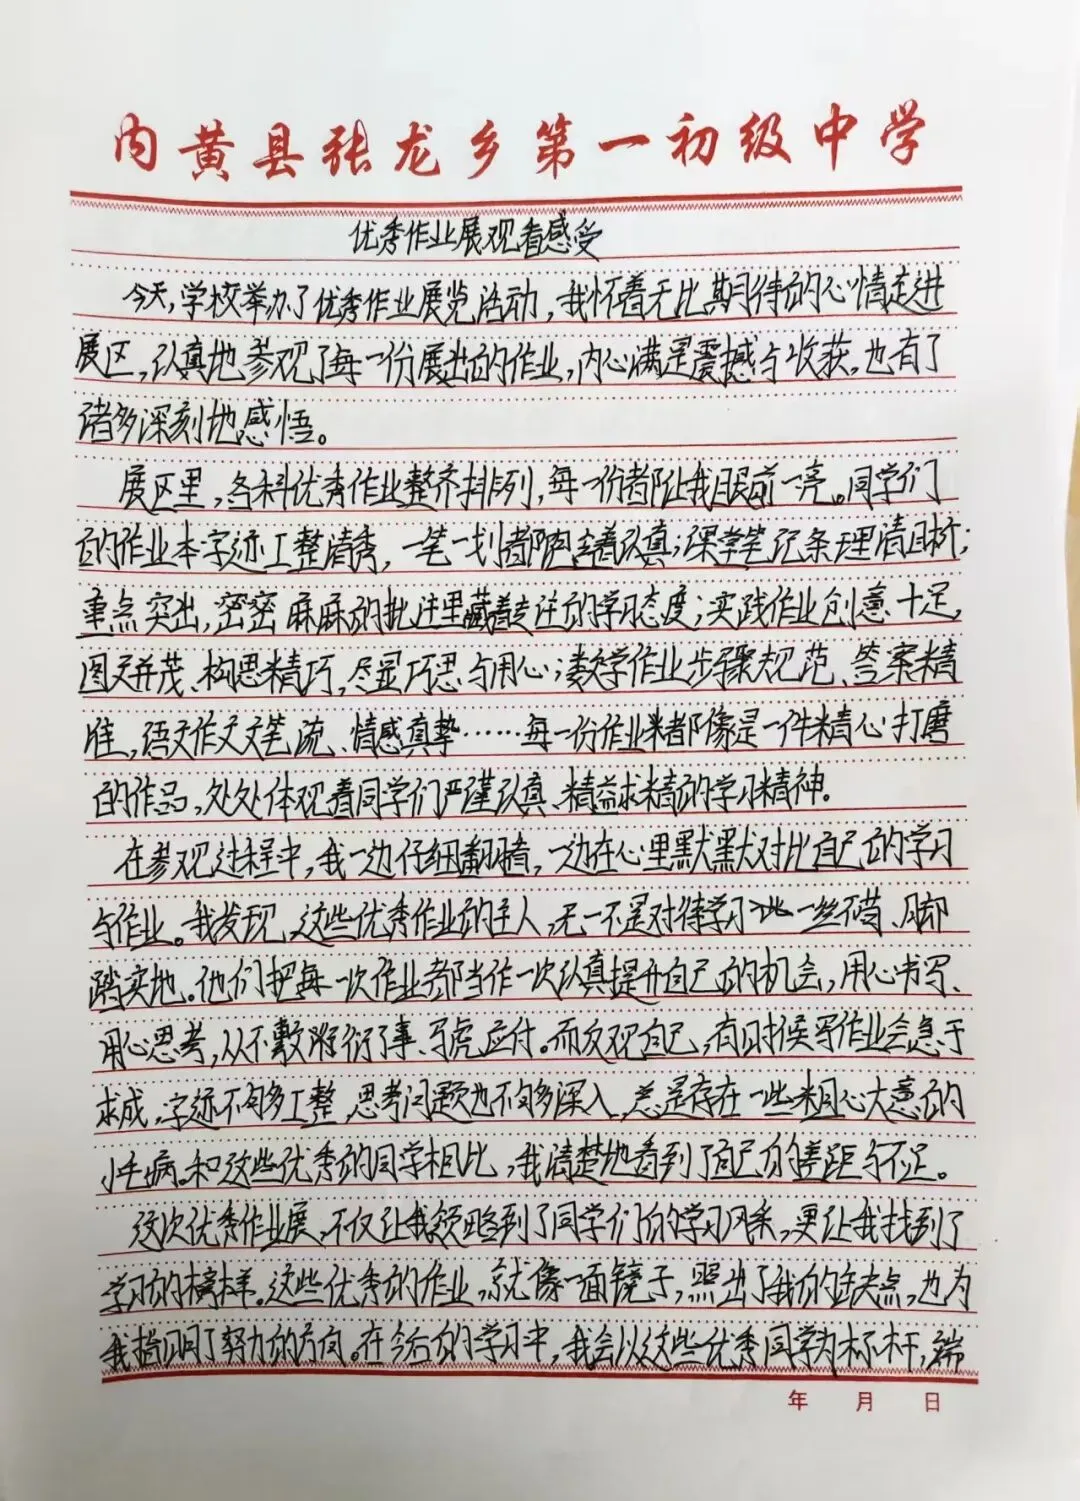 内黄县张龙乡第一初级中学
优秀作业展观看感受
今天,学校举办了优秀作业展览活动,我怀着无比期待的心情走进
展区,认真地参观了每一份展出的作业,内心满是震撼与收获。也有了
诸多深刻地感悟。
展区里,各科优秀作业整齐排列,每一份都让我眼前一亮。同学们
的作业本字迹工整清秀,一笔一划都透着认真;课堂笔记条理清晰;
重点突出,密密麻麻的批注里藏着专注的学习态度;实践作业创意十足,
图文并茂、构思精巧,尽显巧思与用心;数学作业步骤规范、答案精
准,语文作文文笔流、情感真挚……每一份作业都像是一件精心打磨
的作品,处处体现着同学们严谨认真、精益求精的学习精神.
在参观过程中,我一边仔细翻看,一边在心里默默对比自己的学习
与作业。我发现,这些优秀作业的主人,无一不是对待学习一丝不苟、脚
踏实地。他们把每一次作业都当作一次认真提升自己的机会,用心书写、
用心思考,从不敷衍了事、马虎应付。而反观自己,有时候写作业会急于
求成,字迹不够工整,思考问题也不够深入,总是存在一些粗心大意的
小毛病。和这些优秀的同学相比,我清楚地看到了自己的差距与不足。
这次优秀作业展,不仅让我领略到了同学们的学习风采,更让我找到了
学习的榜样。这些优秀的作业,就像一面镜子,照出了我的缺点,也为
我指明了努力的方向。在今后的学习中,我会以这些优秀同学为标杆,端
年 月 日